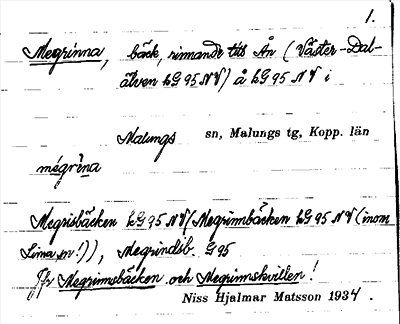 1.
Megrinna, bäck, rinnande till Ån (Väster-Dal-
älven LG 95 NV) å LG 95 NV i
Malungs sn, Malungs tg, Kopp. län
mégrina
Megrisbäcken LG 95 NV (Megrimbäcken LG 95 NV (inom
Lima sn!)), Megrindsb. G 95
Jfr Megrimsbäcken och Megrimskvillen!
Niss Hjalmar Matsson 1934.